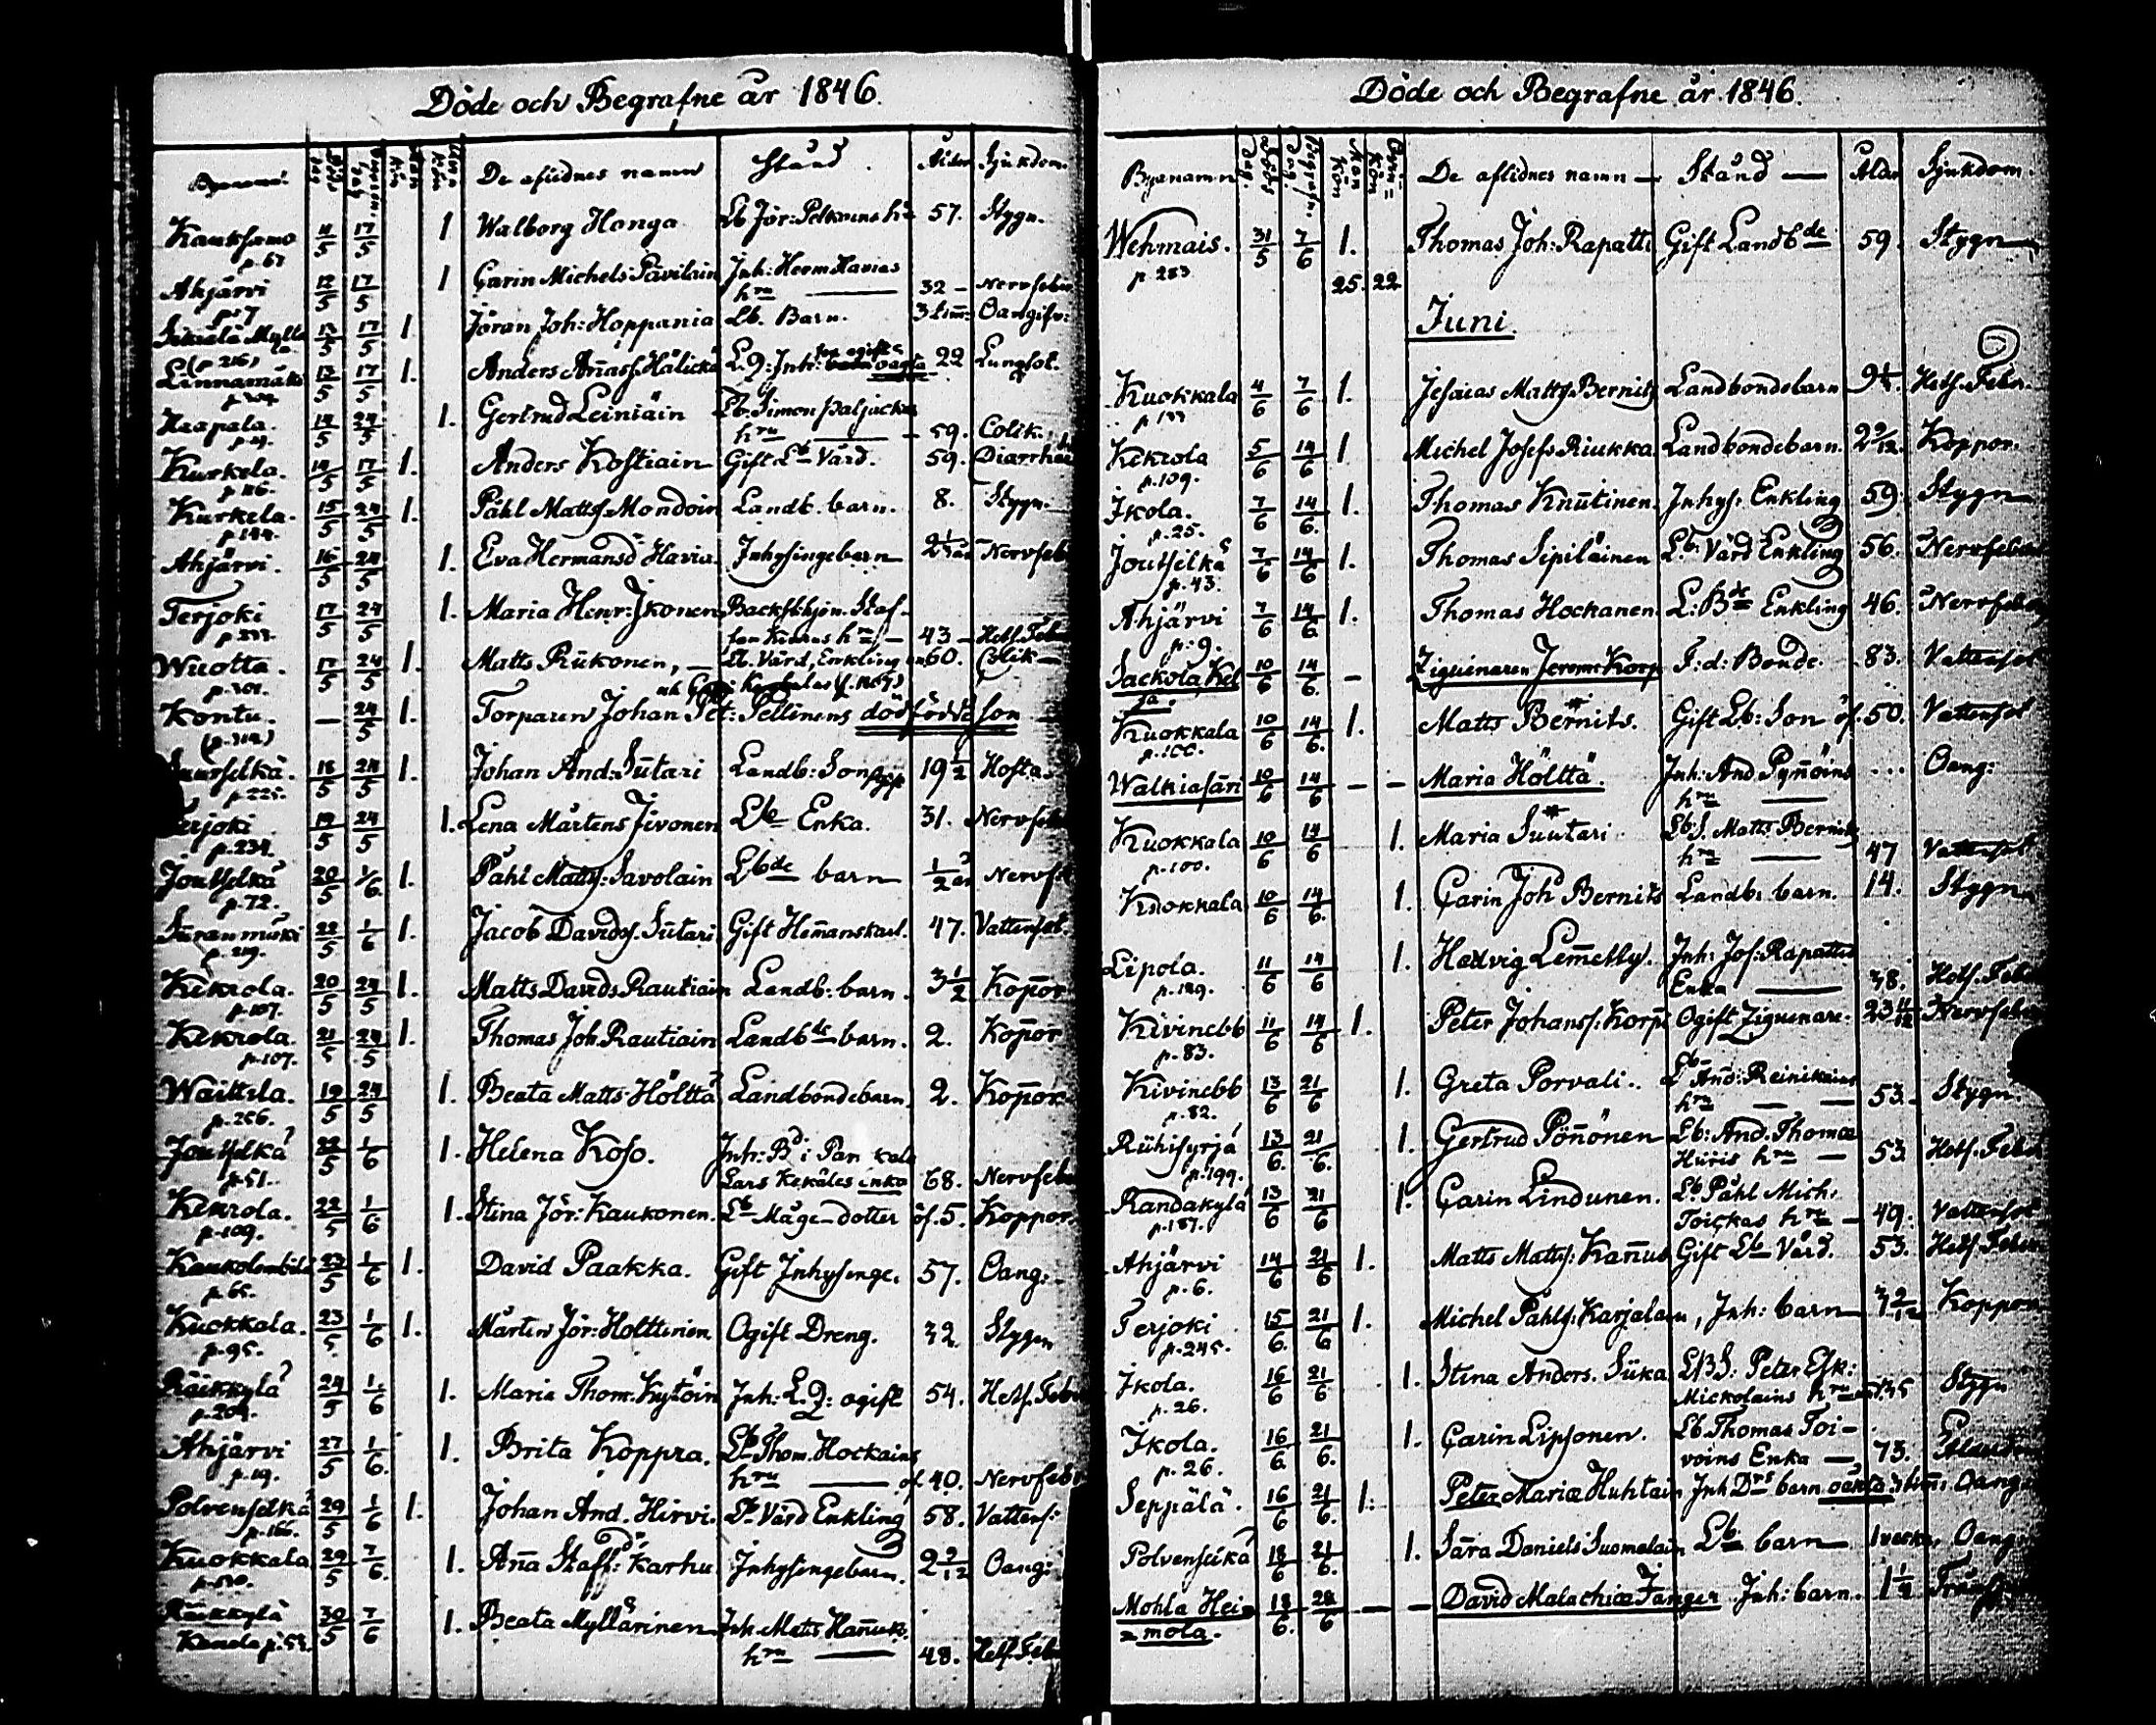 Döde och Begrafne år 1846.
Byanamn Döds dag Begrafn. dag Man kön Qvin kön De aflidnes namn Stånd Ålder Sjukdom.
Kauksamo 11/5 17/5 1 Walborg Honga Lb Jör: Pelkonens h: 57. Stygn.
p. 67
Ahjärvi 12/5 17/5 1 Carin Michels Pävilain Inh: Herm Havias
p. 7 hru — 32 — Nervfeber
13/5 17/5 1. Jöran Joh: Hoppania Lb. Barn. 3 tim: Oangifv:
(p 216)
Linnamäki 12/5 17/5 1. Anders Anass. Hälickä 22 Lungsot.
Haapala. 14/5 24/5 1. Gertrud Leiniäin Lb. Simon Paljacka
hru — 59. Colik.
Kurkela. 14/5 17/5 1. Anders Kostiain Gift Lb Värd. 59. Diarrhé
p 116.
Kurkela. 15/5 24/5 1. Påhl Matts Mondoin Landb. barn. 8. Stygn.
p 144.
Ahjärvi. 16/5 24/5 1. Eva Hermansd Havia. Inhysingebarn Nervfeb
Terjoki 17/5 24/5 1. Maria Henr: Ikonen
p. 233. hru — 43 — Hets. Feb
Wuotta. 17/5 24/5 1. Matts Rükonen, — Lb. Värd, Enkling 60. Colik —
p. 301.
Kontu. — 24/5 1. Torparen Johan Pet: Pellinens dödfödde son
(p. 314)
18/5 24/5 1. Johan And: Sutari Landb: Son 19 1/2 Hosta.
p. 225.
Terjoki 19/5 24/5 1. Lena Mårtens Iivonen Lb Enka. 31. Nervfeb
p. 234.
Joutselkä 20/5 1/6. 1. Påhl Matts: Savolain Lbde barn 1/2 år Nervf
p. 72.
22/5 1/6 1. Jacob Davids. Sutari Gift Hemanskarl. 47. Vattensot.
p. 219.
Kekrola. 20/5 24/5 1. Matts Davids Rautiain Landb: barn. 3 1/2 Kopor
p. 107.
Kekrola. 21/5 24/5 1. Thomas Joh. Rautiain Landbde barn. 2. Kopor
p. 107.
Waittila. 19/5 24/5 1. Beata Matts Hölttä Landbondebarn. 2. Kopor.
p. 256.
Joutselkä 22/5 1/6 1. Helena Koso.
p. 51. Lars Kekäles enka 68. Nervfeb
Kekrola. 22/5 1/6 1. Stina Jör: Kaukonen. Lb Måge-dotter öf. 5. Koppor.
p. 109.
23/5 1/6 1. David Paakka. Gift Inhysinge. 57. Oang:
p. 65.
Kuokkala. 23/5. 1/6 1. Mårten Jör: Holttinen Ogift Dreng. 32 Stygn
p. 95.
Räikkylä 24/5 1/6 1. Maria Thom. Kytöin Inh: L. D: ogift 54. Hets. Feb
p. 204.
Ahjärvi 27/5 1/6. 1. Brita Koppra. Lb Thom. Hockains
p. 19. hru — öf 40. Nervfeb
Polvenselkä 29/5 1/6 1. Johan And. Hirvi. Lb Värd Enkling 58. Vattens:
p. 166.
Kuokkala 29/5 7/6. 1. Anna Staffs: Karhu Inhysingebarn. 2 9/12 Oang:
Räikkylä 30/5 7/6 1. Beata Myllärinen Inh. Matts Hanuk.
Kanala p. 53. hru — 48. Hets. Feb
Döde och Begrafne år 1846.
Byanamn Döds dag. Begrafn. dag. Man kön Qvin= kön De aflidnes namn — Stånd — Ålder Sjukdom.
Wehmais. 31/5 7/6 1. Thomas Joh: Rapatti Gift Landbde 59. Stygn
p. 283 25. 22
Juni.
Kuokkala 4/6 7/6 1. Jesaias Matts. Bernits Landbondebarn 9 1/2. Hets. Feber.
p 133
Kekrola 5/6 14/6 1. Michel Josefs Riukka Landbondebarn. 2 9/12. Koppor.
p. 109.
Ikola. 7/6 14/6. 1. Thomas Knutinen. Inhys: Enkling 59. Stygn
p. 25.
Joutselkä 7/6 14/6 1. Thomas Sipiläinen Lb: Värd Enkling 56. Nervfeber
p. 43.
Ahjärvi 7/6 14/6 1. Thomas Hockanen. L: Bde Enkling 46. Nervfeber
p. 9.
Sackola, Kel 10/6 14/6. — Ziguenaren Jeremi: Korp F: d: Bonde. 83. Vattensot
ja.
Kuokkala 10/6 14/6. 1. Matts Bernits. Gift Lb: Son öf. 50. Vattensot
p. 100.
Walkiasari 10/6 14/6 — — Maria Hölttä. Inh: And Pynnöins ... Oang:
hru —
Kuokkala 10/6 14/6 1. Maria Suutari. Lb: S. Matts Bernits
p. 100. hru — 47 Vattensot
Kuokkala 10/6 14/6. 1. Carin Joh Bernits Landb: barn. 14. Stygn
Lipola. 11/6 14/6 1. Hedvig Lemetty. Inh: Jos: Rapatti
p. 149. Enka — 38. Hets. Feber
Kivinebb 11/6 14/6 1. Peter Johanss: Korp Ogift Ziguenare. 23 11/12 Nervfeber
p. 83.
Kivinebb 13/6 21/6 1. Greta Porvali. Lb And: Reinikains
p. 82. hru — — 53. Stygn.
Rühisyrjä 13/6. 21/6. 1. Gertrud Pönnönen Lb: And. Thomæ
p. 199. Hüris hru — 53. Hets. Feber
Randakylä 13/6 21/6 1. Carin Lindunen. Lb. Påhl Mich:
p. 187. Toickas hru — 49. Vattensot
Ahjärvi 14/6 21/6 1. Matts Matts: Kanus Gift Lb Värd. 53. Hets. Feber
p. 6.
Terjoki 15/6. 21/6 1. Michel Påhls: Karjalan, Inh: barn Koppor
p. 245.
Ikola. 16/6 21/6. 1. Stina Anders. Süka LBS: Peter Esk:
p. 26. Mickolains hru Stygn
Ikola. 16/6. 21/6. 1. Carin Lipsonen. Lb Thomas Toi-
p. 26. voins Enka — 73.
Seppälä. 16/6 21/6. 1. Peter Mariæ Huhtain Inh Drs barn oäkta 3 tim: Oang
Polvenselkä 18/6 21/6. 1. Sara Daniels Suomelain Lb barn 1 vecka, Oang
Mohla Hei= 18/6. 28/6 — — David Malachiæ Fanger Inh: barn. 1 1/2
=mola.